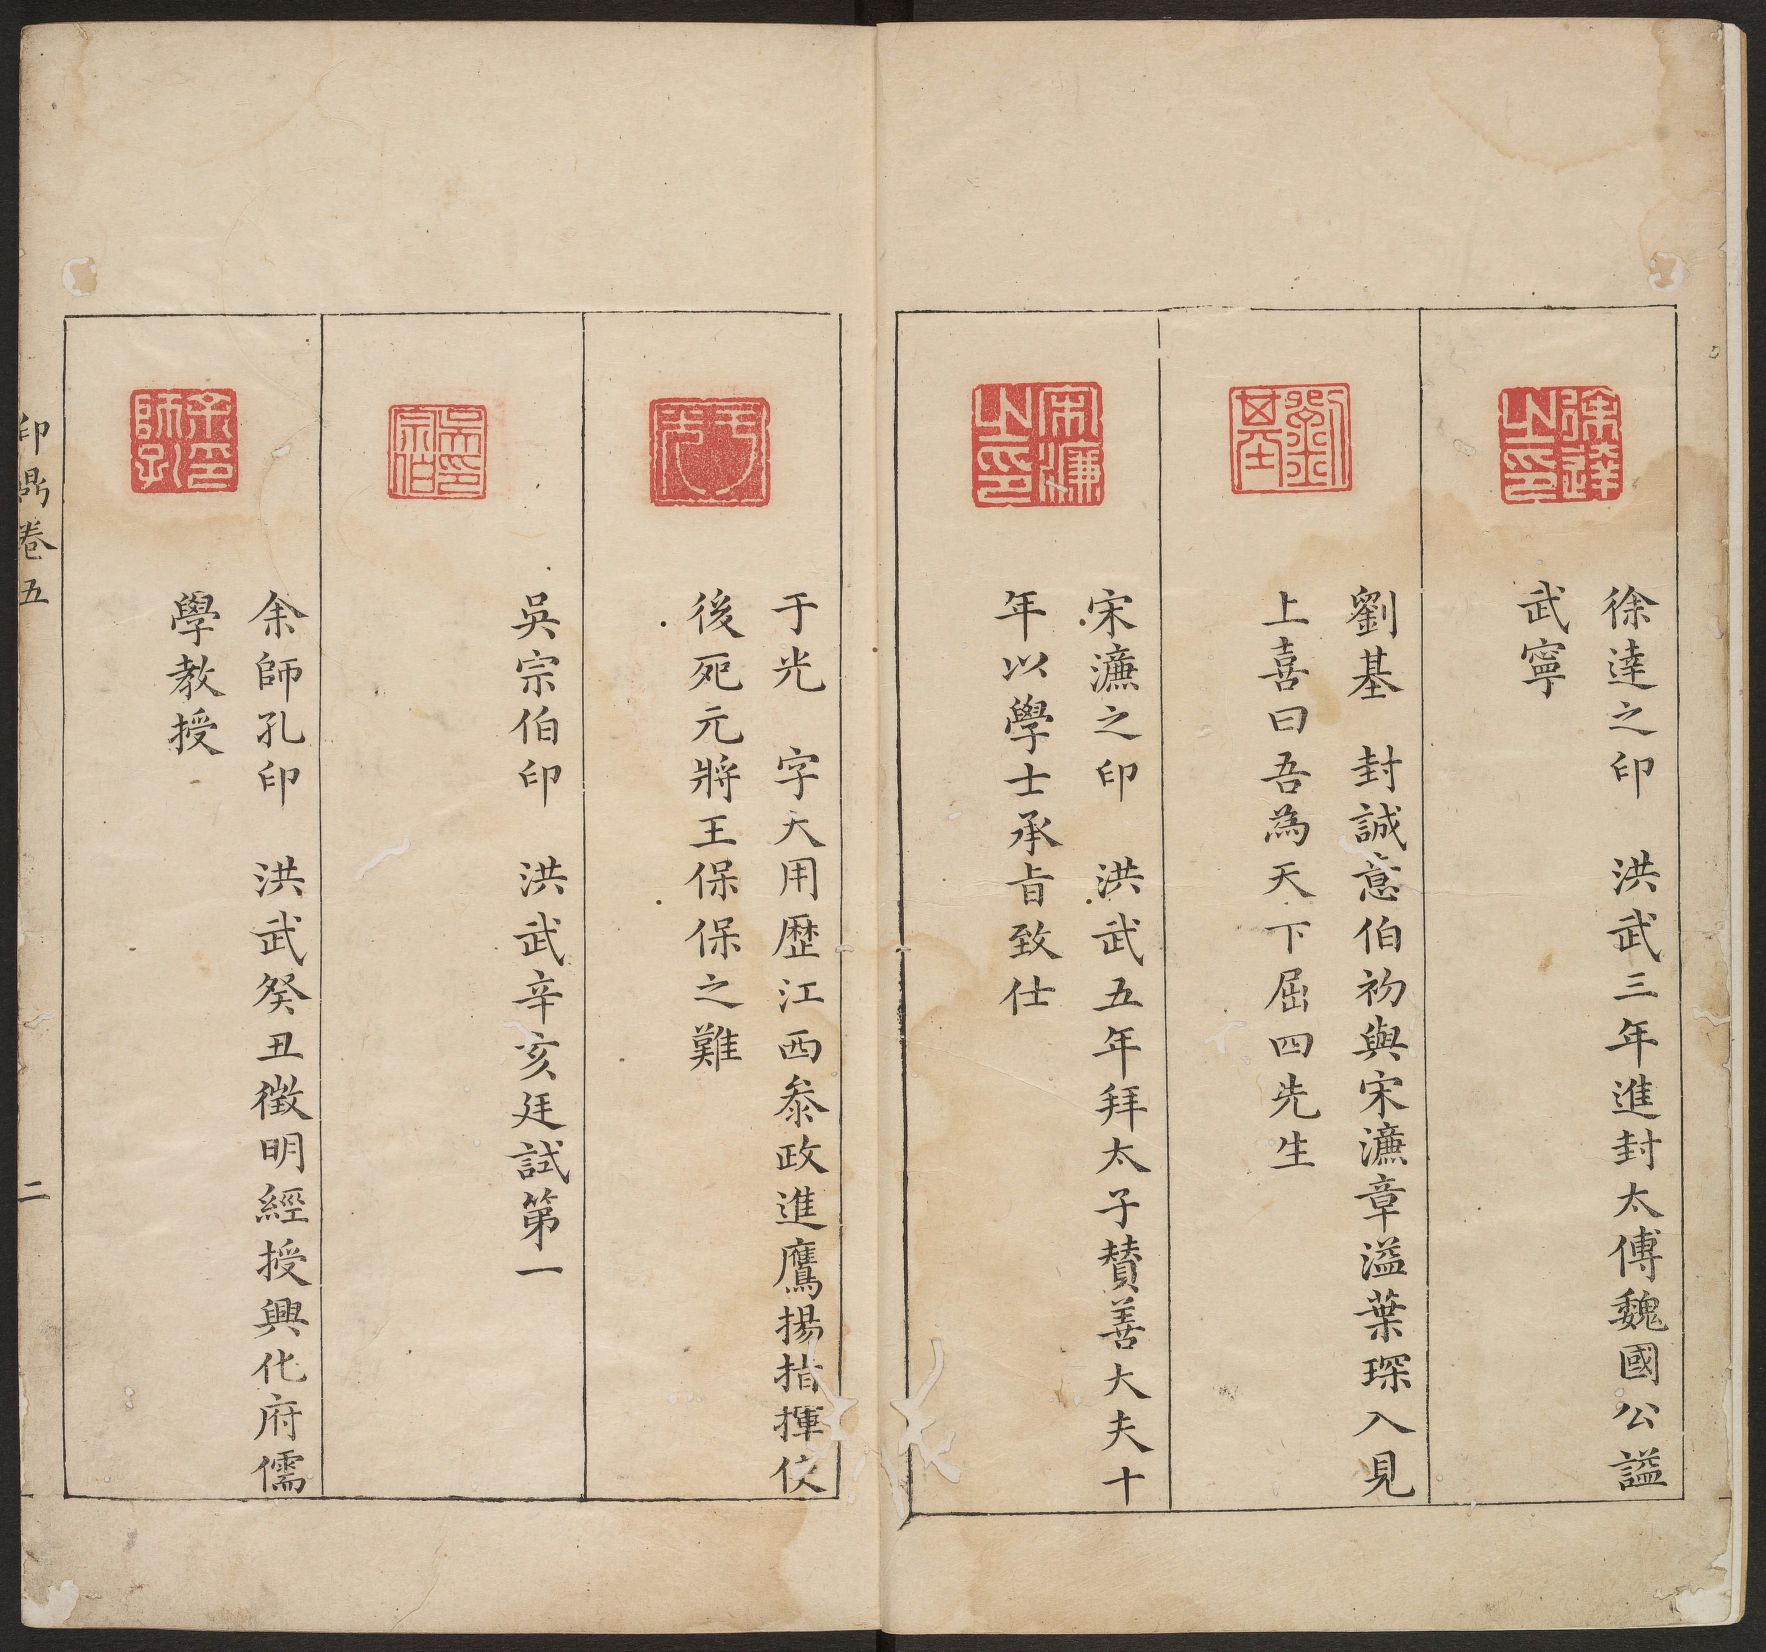 徐達之印
徐達之印　洪武三年進封太傅魏國公謚
武寧
劉基
劉基　封誠意伯初與宋濂章溢葉琛入見
上喜曰吾為天下屈四先生
宋濂之印
宋濂之印　洪武五年拜太子賛善大夫十
年以學士承旨致仕
于光
于光　字大用歷江西叅政進鷹揚指揮使
後死元將王保保之難
吳宗伯印
吳宗伯印　洪武辛亥廷試第一
余師孔印
余師孔印　洪武癸丑徵明經授興化府儒
學教授
印鼎卷五　二